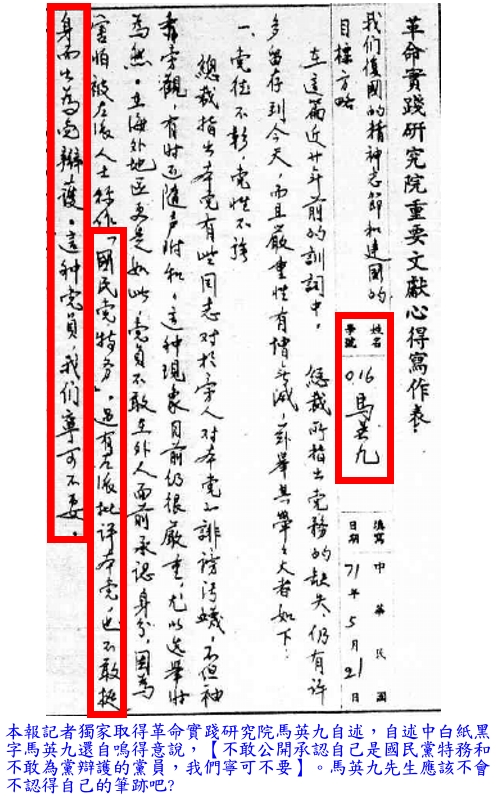 革命實踐研究院重要文獻心得寫作表
我们復國的精神志節和建國的
目標方略
姓名 馬英九
學號 016
填寫日期 中華民國71年5月21日
在這篇近廿年前的訓詞中，總裁所指出党務的缺失，仍有許
多留存到今天，而且嚴重性有增無減，茲舉其犖犖大者如下：
一、党德不彰，党性不強
總裁指出本党有些同志对於旁人对本党之誹謗污衊，不但袖
手旁觀，有时还隨声附和，這种現象目前仍很嚴重，尤以选舉时
為然。在海外地区更是如此，党員不敢在外人面前承認身分，因為
害怕被左派人士称作「國民党特务」，遇有左派批評本党，也不敢挺
身而出為党辯護。這种党員，我们寧可不要。
本報記者獨家取得革命實踐研究院馬英九自述，自述中白紙黑
字馬英九還自鳴得意說，【不敢公開承認自己是國民黨特務和
不敢為黨辯護的黨員，我們寧可不要】。馬英九先生應該不會
不認得自己的筆跡吧?